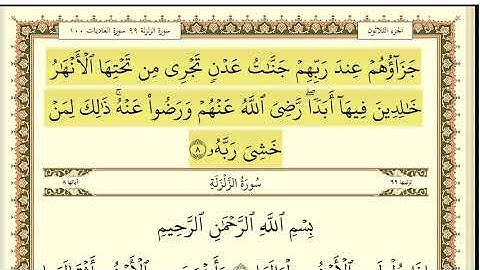 الجزء الثلاثون سورة الزلزلة ٩٩ سورة العاديات ١٠٠
جَزَآؤُهُمْ عِندَ رَبِّهِمْ جَنَّٰتُ عَدْنٍ تَجْرِى مِن تَحْتِهَا ٱلْأَنْهَٰرُ
خَٰلِدِينَ فِيهَآ أَبَدًا ۖ رَّضِىَ ٱللَّهُ عَنْهُمْ وَرَضُوا۟ عَنْهُ ۚ ذَٰلِكَ لِمَنْ
خَشِىَ رَبَّهُۥ ٨
ترتيبها ٩٩ سُورَةُ الزَّلْزَلَةِ آياتها ٨
بِسْمِ ٱللَّهِ ٱلرَّحْمَٰنِ ٱلرَّحِيمِ